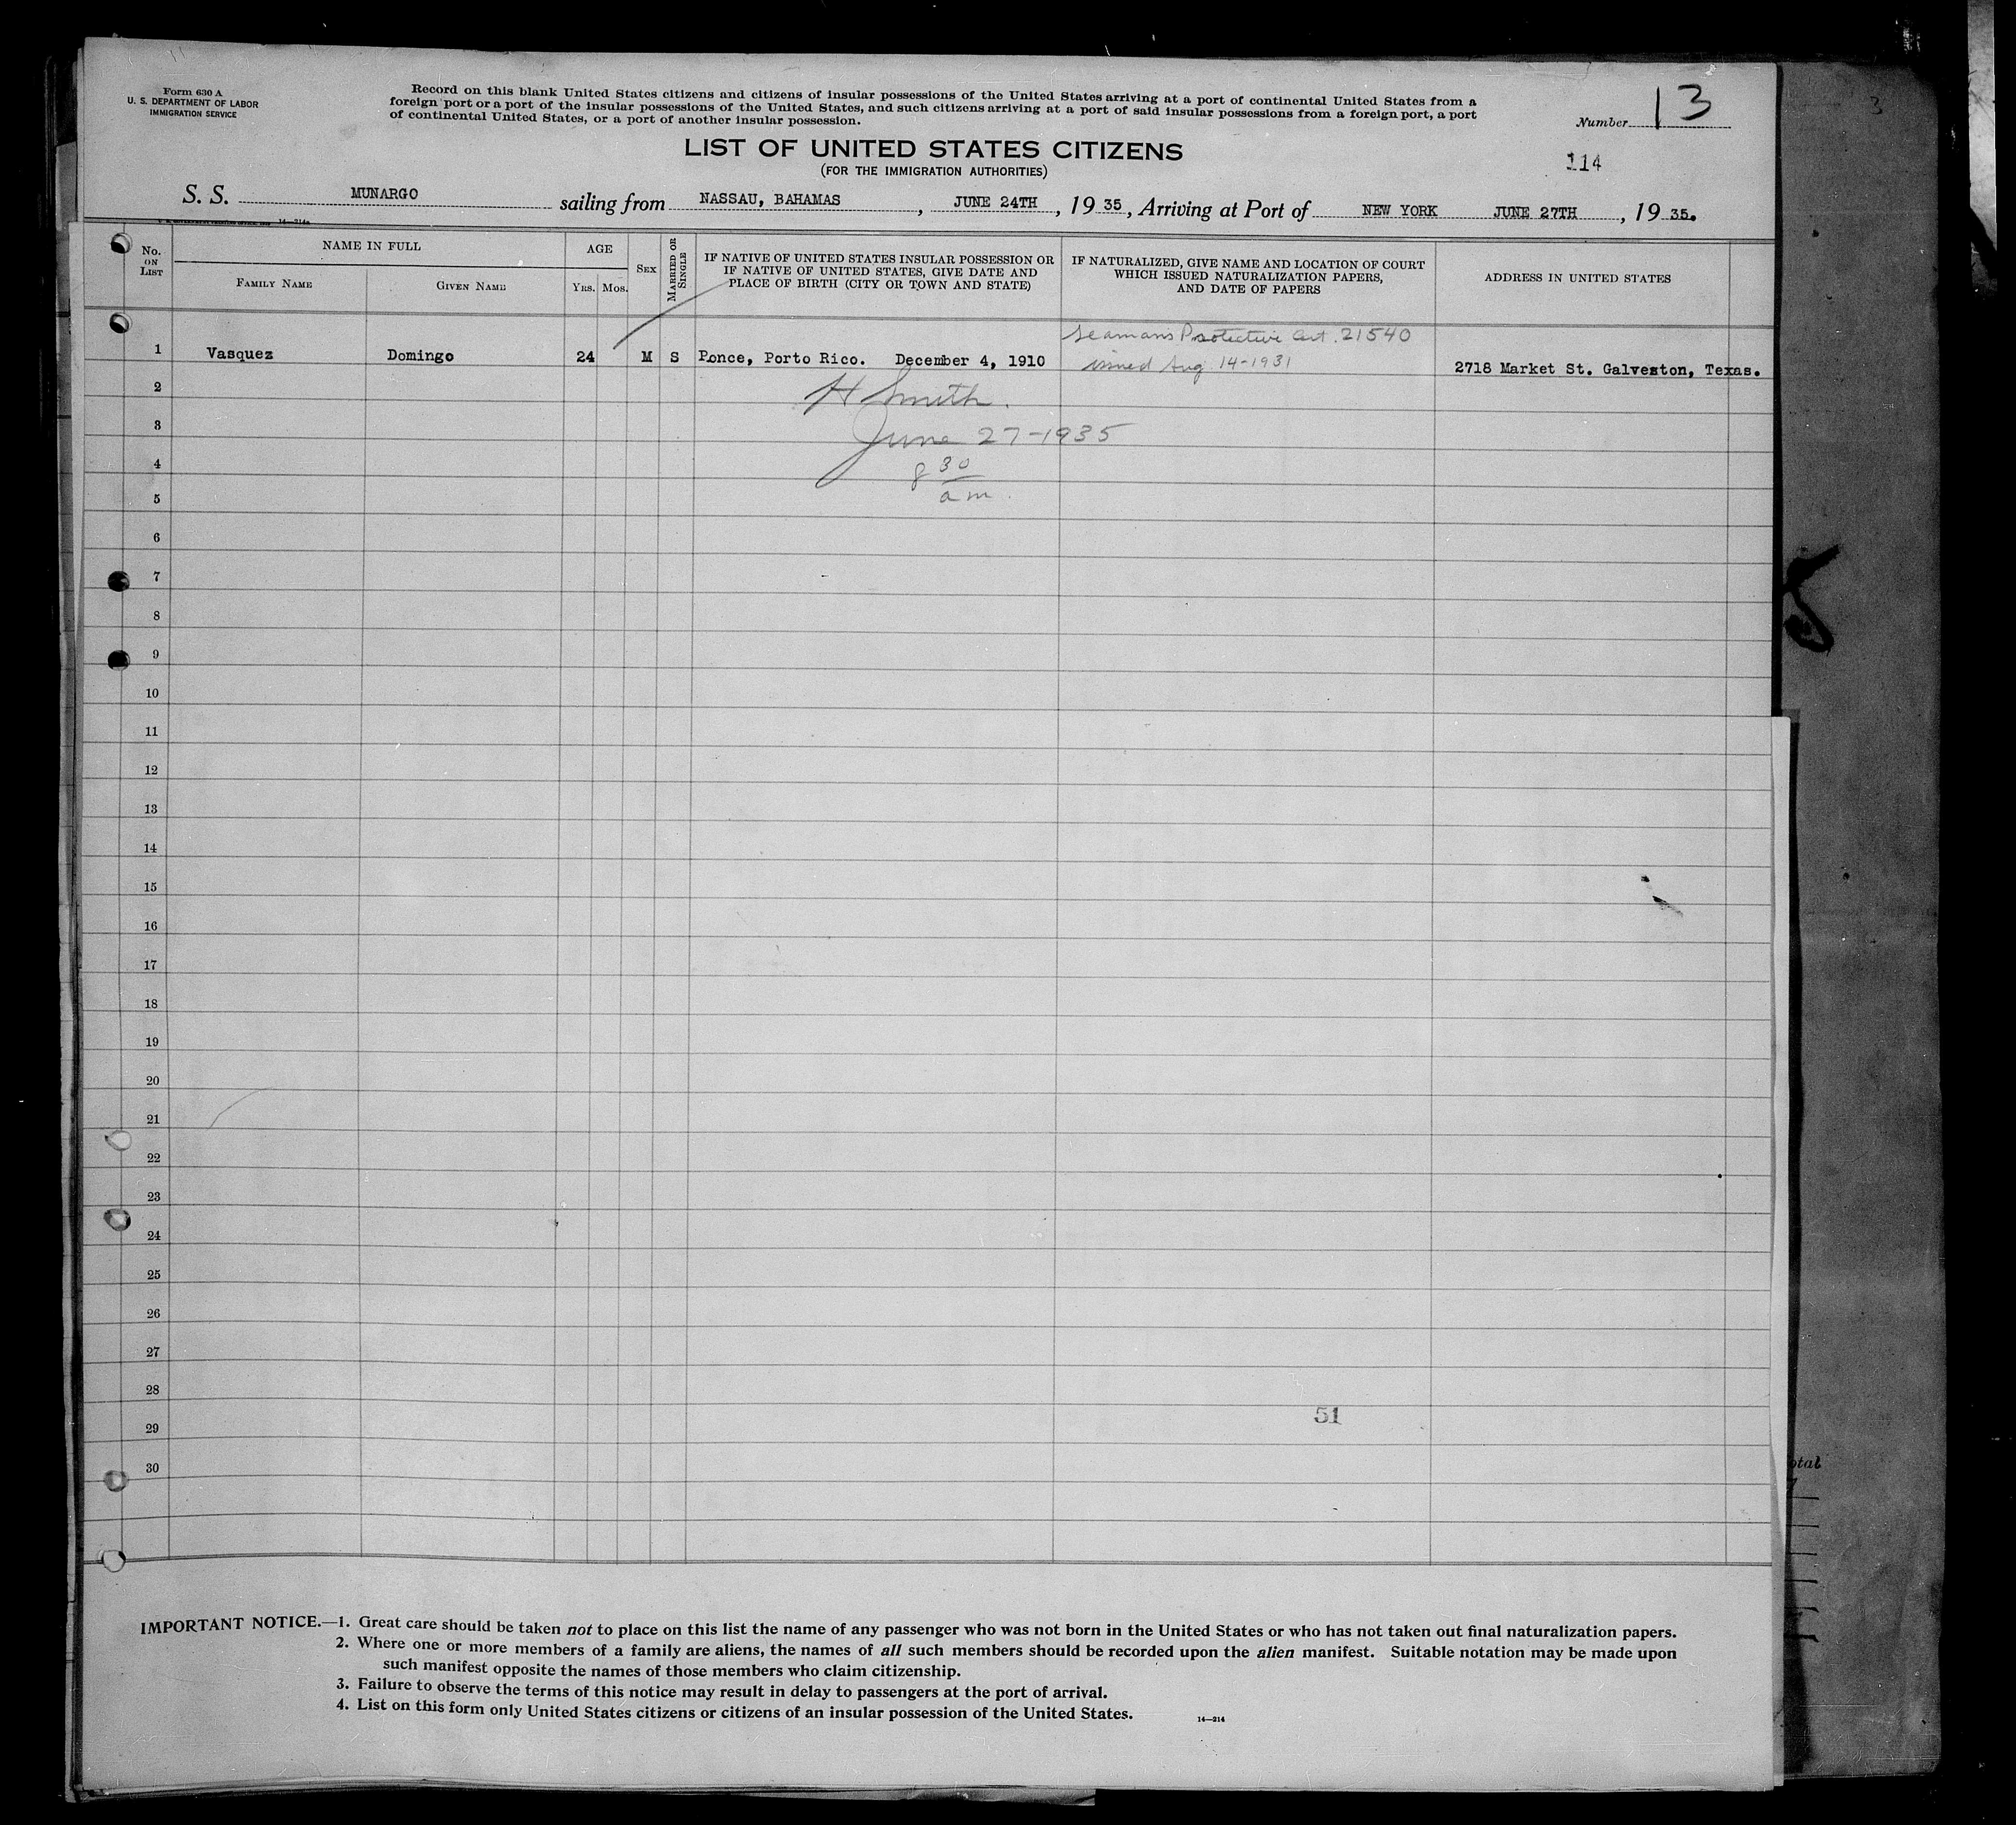 Form 630 A
U. S. DEPARTMENT OF LABOR
IMMIGRATION SERVICE
Record on this blank United States citizens and citizens of insular possessions of the United States arriving at a port of continental United States from a
foreign port or a port of the insular possessions of the United States, and such citizens arriving at a port of said insular possessions from a foreign port, a port
of continental United States, or a port of another insular possession.
Number 13
LIST OF UNITED STATES CITIZENS
(FOR THE IMMIGRATION AUTHORITIES)
114
S. S. MUNARGO sailing from NASSAU, BAHAMAS, JUNE 24TH, 1935, Arriving at Port of NEW YORK JUNE 27TH, 1935.
14—214a
No. ON LIST
NAME IN FULL
FAMILY NAME
GIVEN NAME
AGE
YRS. MOS.
SEX
MARRIED OR SINGLE
IF NATIVE OF UNITED STATES INSULAR POSSESSION OR
IF NATIVE OF UNITED STATES, GIVE DATE AND
PLACE OF BIRTH (CITY OR TOWN AND STATE)
IF NATURALIZED, GIVE NAME AND LOCATION OF COURT
WHICH ISSUED NATURALIZATION PAPERS,
AND DATE OF PAPERS
ADDRESS IN UNITED STATES
Seamans Protective Cert. 21540
1 Vasquez Domingo 24 M S Ponce, Porto Rico. December 4, 1910 issued Aug 14-1931 2718 Market St. Galveston, Texas.
2 H Smith.
3 June 27-1935
4 8 30
5 am.
6
7
8
9
10
11
12
13
14
15
16
17
18
19
20
21
22
23
24
25
26
27
28
51
29
30
otal
IMPORTANT NOTICE.—1. Great care should be taken not to place on this list the name of any passenger who was not born in the United States or who has not taken out final naturalization papers.
2. Where one or more members of a family are aliens, the names of all such members should be recorded upon the alien manifest. Suitable notation may be made upon
such manifest opposite the names of those members who claim citizenship.
3. Failure to observe the terms of this notice may result in delay to passengers at the port of arrival.
4. List on this form only United States citizens or citizens of an insular possession of the United States.
14—214